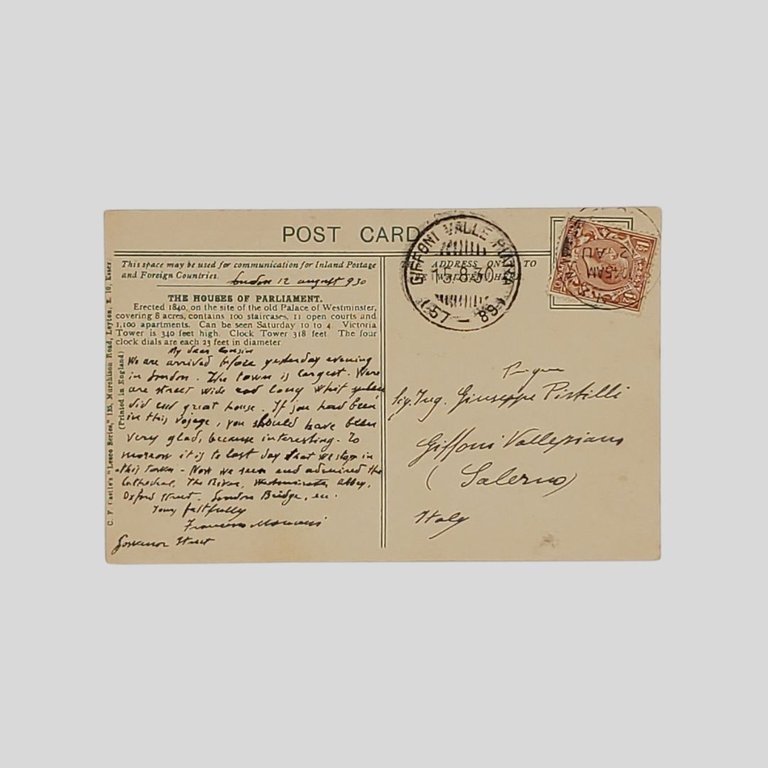 POST CARD
This space may be used for communication for Inland Postage
and Foreign Countries.
ADDRESS ONLY TO
London 12 august 930
THE HOUSES OF PARLIAMENT.
Erected 1840, on the site of the old Palace of Westminster,
covering 8 acres, contains 100 staircases, 11 open courts and
1,100 apartments. Can be seen Saturday 10 to 4. Victoria
Tower is 340 feet high. Clock Tower 318 feet. The four
clock dials are each 23 feet in diameter.
My dear Cousin
We are arrived before yesterday evening
in London. The town is largest. Here
are street wide and long whit
did and great house. If you had been
in this voyage, you should have been
very glad, because interesting. To
morrow it is to last day that we stop in
this town. Now we seen and admired the
Cathedral, The River, Westminster Abbey,
Oxford Street, London Bridge, ecc.
Your faithfully
Francesco
Grosvenor Street
C. F. Castle's "Lesco Series," 135, Murchison Road, Leyton, E. 10, Essex
(Printed in England)
GIFFONI VALLE PIANA
15.8.30
(57 — 89)
AU
45AM
Sig. Ing. Giuseppe Pistilli
Giffoni Vallepiana
(Salerno)
Italy